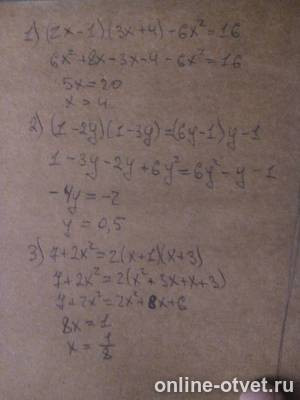 1) (2x-1)(3x+4)-6x²=16
6x²+8x-3x-4-6x²=16
5x=20
x=4
2) (1-2y)(1-3y)=(6y-1)y-1
1-3y-2y+6y²=6y²-y-1
-4y=-2
y=0,5
3) 7+2x²=2(x+1)(x+3)
7+2x²=2(x²+3x+x+3)
7+2x²=2x²+8x+6
8x=1
x=1/8
online-otvet.ru